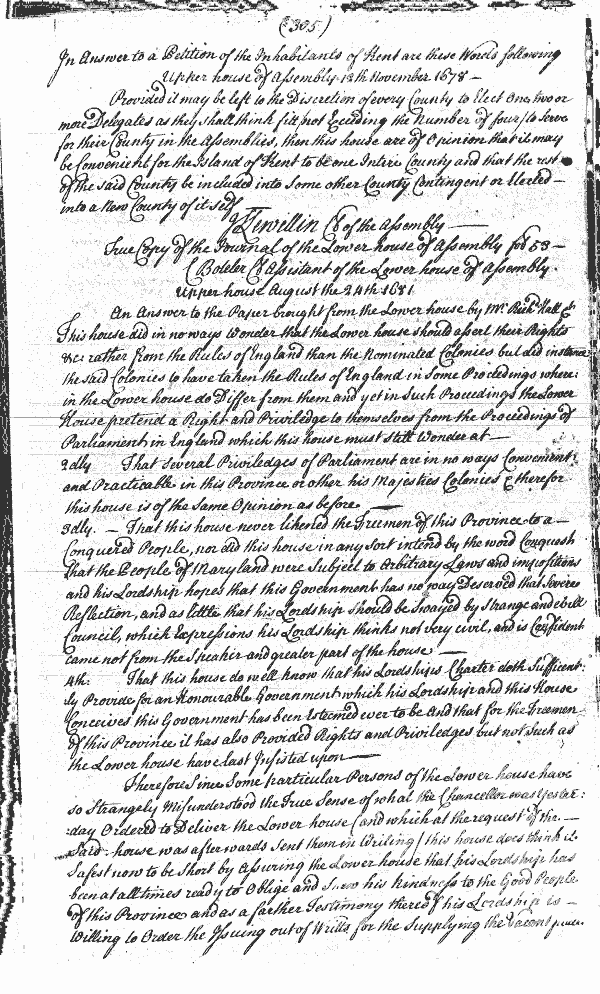 (305)
In Answer to a Petition of the Inhabitants of Kent are these Words following
Upper house of Assembly 13th November 1678 —
Provided it may be left to the Discretion of every County to Elect One, two or
more Delegates as they shall think fitt, not Exceding the Number of four, to Serve
for their County in the Assemblies, then this house are of Opinion that it may
be Convenient for the Island of Kent to be one Intire County and that the rest
of the said County be included into Some other County Contingent or Elected —
into a New County of it Self
Llewillin Cl of the Assembly —
True Copy of the Journal of the Lower house of Assembly fol 53 —
C Boteler Cl Assistant of the Lower house of Assembly.
Upper house August the 24th 1681
An Answer to the Paper brought from the Lower house by Mr. Richd Hall &c
This house did in no ways Wonder that the Lower house should assert their Rights
&c: rather from the Rules of England than the Nominated Colonies but did instance
the said Colonies to have taken the Rules of England in Some Procedings where:
in the Lower house do Differ from them and yet in Such Procedings the Lower
House pretend a Right and Priviledge to themselves from the Procedings of
Parliament in England which this house must still Wonder at —
2dly That Several Priviledges of Parliament are in no ways Convenient
and Practicable in this Province or other his Majesties Colonies & therefor
this house is of the Same Opinion as before —
3dly. — That this house never likened the Freemen of this Province to a —
Conquered People, nor did this house in any sort intend by the word Conquest
that the People of Maryland were Subject to Arbitrary Laws and impositions
and his Lordship hopes that this Government has no way Deserved that Severe
Reflection, and as little that his Lordship should be Swayed by Strange and evill
Council, which Expressions his Lordship thinks not very civil, and is Confident
came not from the Speaker and greater part of the house —
4th. That this house do well know that his Lordships Charter doth Sufficent:
ly Provide for an Honourable Government which his Lordship and this House
Conceives this Government has been Esteemed ever to be And that for the Freemen
of this Province it has also Provided Rights and Priviledges but not Such as
the Lower house have last Insisted upon —
Therefore Since Some particular Persons of the Lower house have
so Strangely Misunderstood the True Sense of what the Chancellor was yester:
day Ordered to Deliver the Lower house (and which at the request of the —
Said house was afterwards Sent them in Writing) this house does think it
Safest now to be Short by Assuring the Lower house that his Lordship has
been at all times ready to Oblige and Shew his kindness to the Good People
of this Province and as a farther Testimony thereof his Lordship is —
Willing to Order the Issuing out of Writts for the Supplying the Vacant